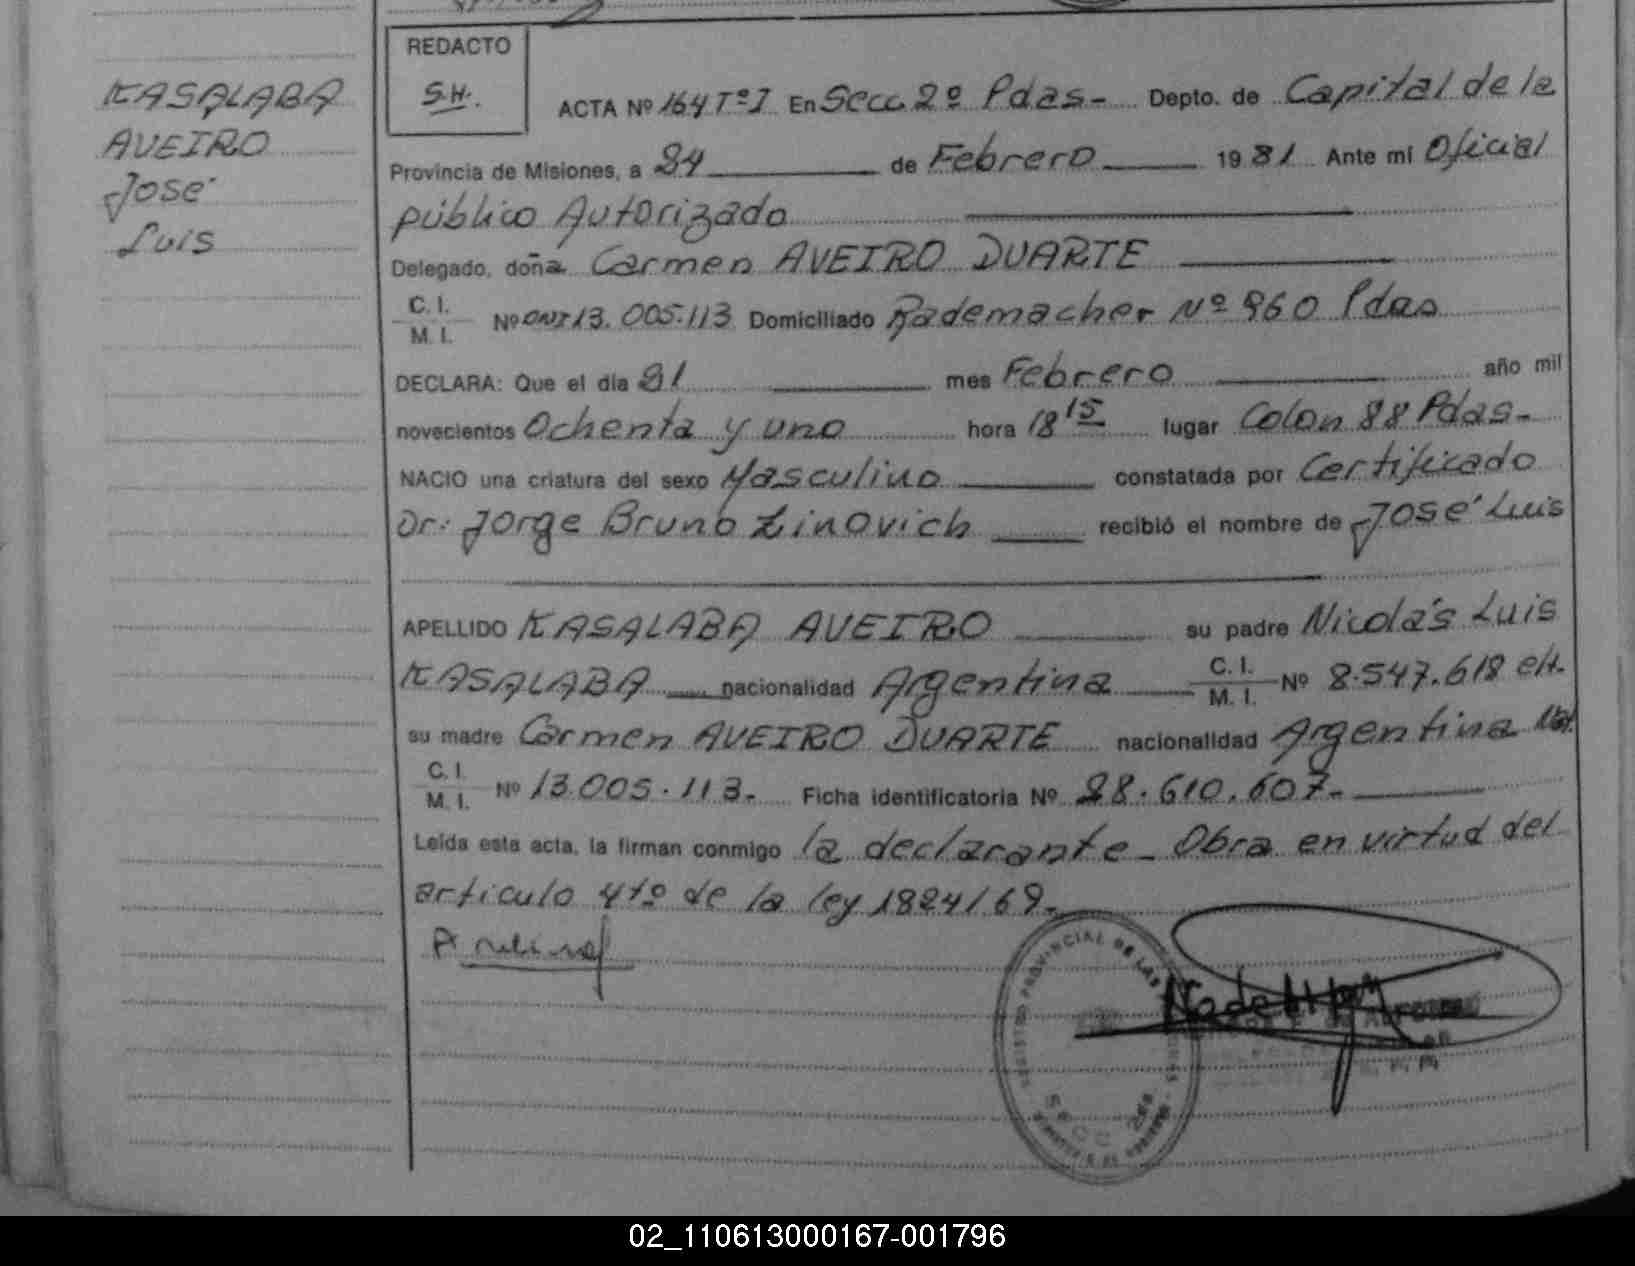 KASALABA
AVEIRO
José
Luis
REDACTO
S.H.
ACTA Nº 164 Tº I En Secc 2º Pdas- Depto. de Capital de la
Provincia de Misiones, a 24 de Febrero 1981 Ante mi Oficial
público Autorizado
Delegado, doña Carmen AVEIRO DUARTE
C. I.
M. I. Nº 13.005.113 Domiciliado Rademacher Nº 960 Pdas
DECLARA: Que el día 21 mes Febrero año mil
novecientos Ochenta y uno hora 18 15 lugar Colon 88 Pdas-
NACIO una criatura del sexo Masculino constatada por Certificado
Dr: Jorge Bruno Zinovich recibió el nombre de José Luis
APELLIDO KASALABA AVEIRO su padre Nicolás Luis
KASALABA nacionalidad Argentina C. I. M. I. Nº 8.547.618
su madre Carmen AVEIRO DUARTE nacionalidad Argentina
C. I.
M. I. Nº 13.005.113.- Ficha identificatoria Nº 28.610.607.-
Leída esta acta, la firman conmigo la declarante- Obra en virtud del
articulo 41º de la ley 1824/69.-
REGISTRO PROVINCIAL DE LAS PERSONAS
SECC 2da
02_110613000167-001796